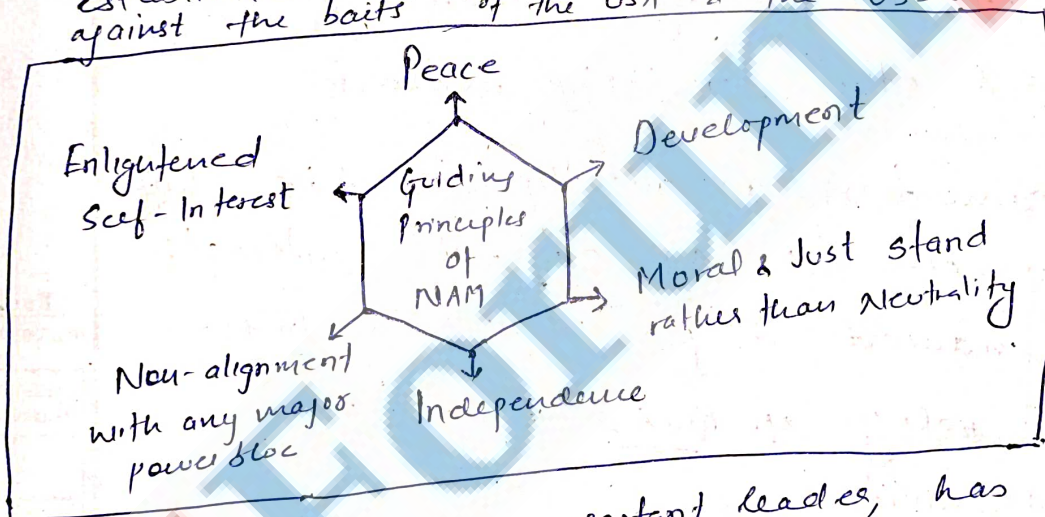 against the baits of the USA
Peace
Development
Enlightened
Self-Interest
Guiding
Principles
of
NAM
Moral & Just stand
rather than Neutrality
Non-alignment
with any major
power bloc
Independence
leader, has
Forum